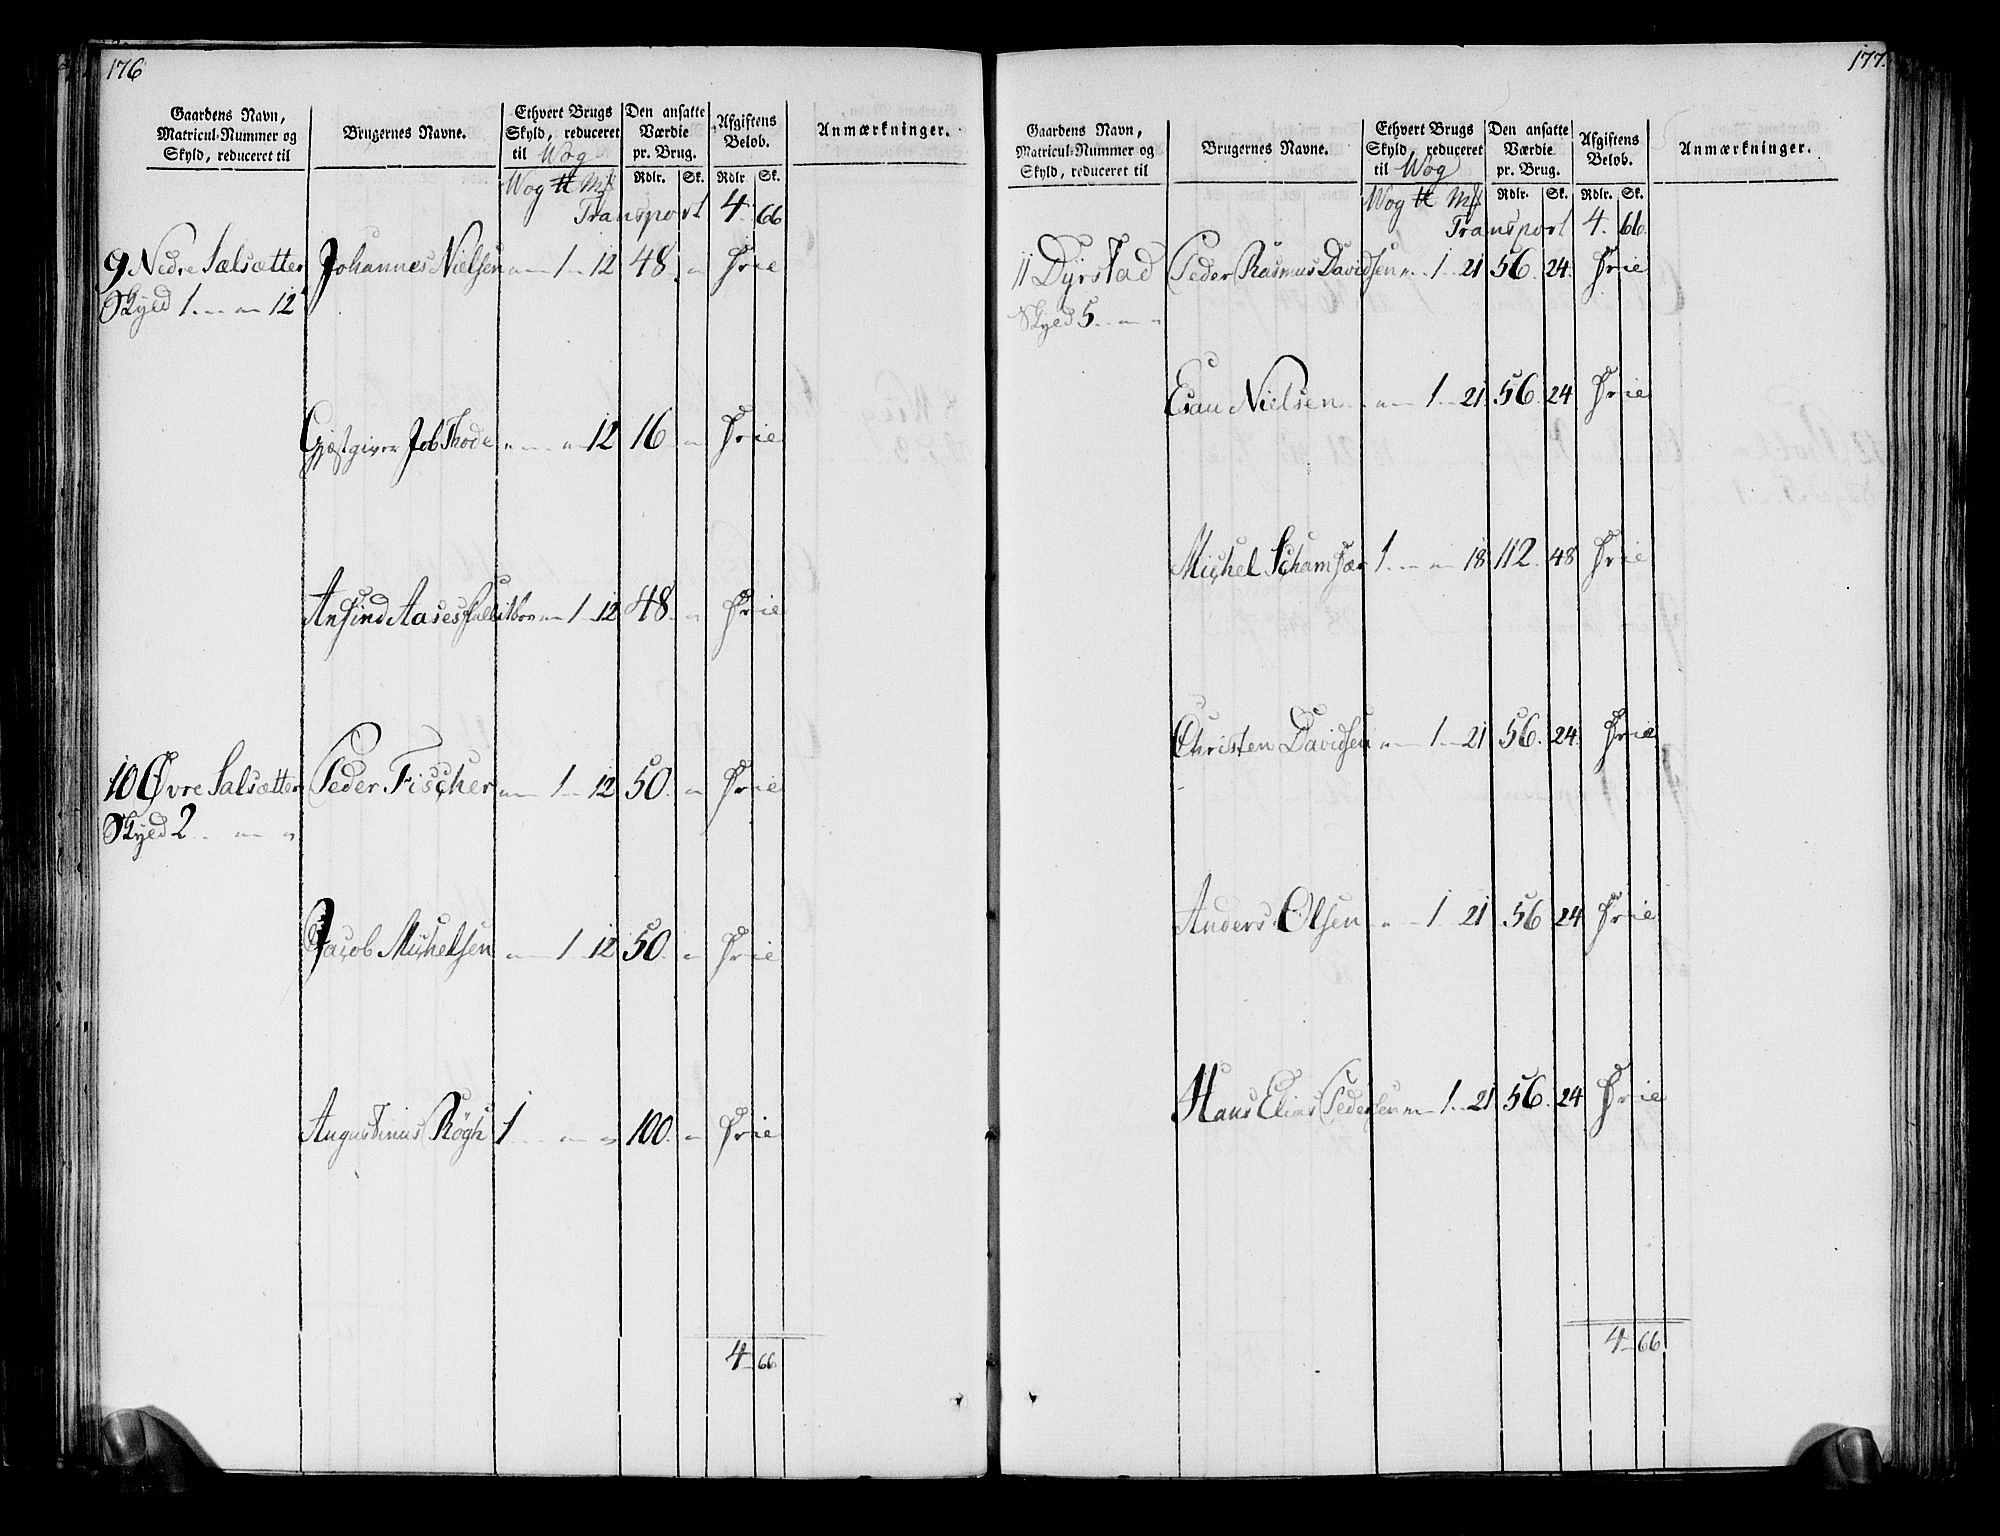 176
Gaardens Navn, Matricul-Nummer og Skyld, reduceret til
Brugernes Navne.
Ethvert Brugs Skyld, reduceret til Wog
Den ansatte Værdie pr. Brug.
Afgiftens Beløb.
Anmærkninger.
Wog ℔ Mk Rdlr. Sk. Rdlr Sk.
Transport 4. 66
9 Nedre Sælsætter Johannes Nielsen „ 1 12 48. „ Frie
Skyld 1. „ 12
Gjæstgiver Job Thode „ „ 12 16 „ Frie
Anfind Aases „ 1 12 48. „ Frie
10 Øvre Salsætter Peder Fischer „ 1 12 50. „ Frie
Skyld 2 „ „
Jacob Michelsen „ 1 12 50. „ Frie
Augustinus Røgh 1 „ „ 100. „ Frie
4 66
177.
Gaardens Navn, Matricul-Nummer og Skyld, reduceret til
Brugernes Navne.
Ethvert Brugs Skyld, reduceret til Wog
Den ansatte Værdie pr. Brug.
Afgiftens Beløb.
Anmærkninger.
Wog ℔ Mk Rdlr. Sk. Rdlr. Sk.
Transport 4. 66.
11 Dyrstad Peder Rasmus Davidsen „ 1 21 56. 24. Frie
Skyld 5. „ „
Esau Nielsen „ 1 21. 56. 24 Frie
Michel 1 „ 18 112. 48 Frie
Christen Davidsen „ 1 21 56. 24. Frie
Anders Olsen „ 1 21 56 24 Frie
Hans Elias Pedersen „ 1 21 56. 24 Frie
4 66